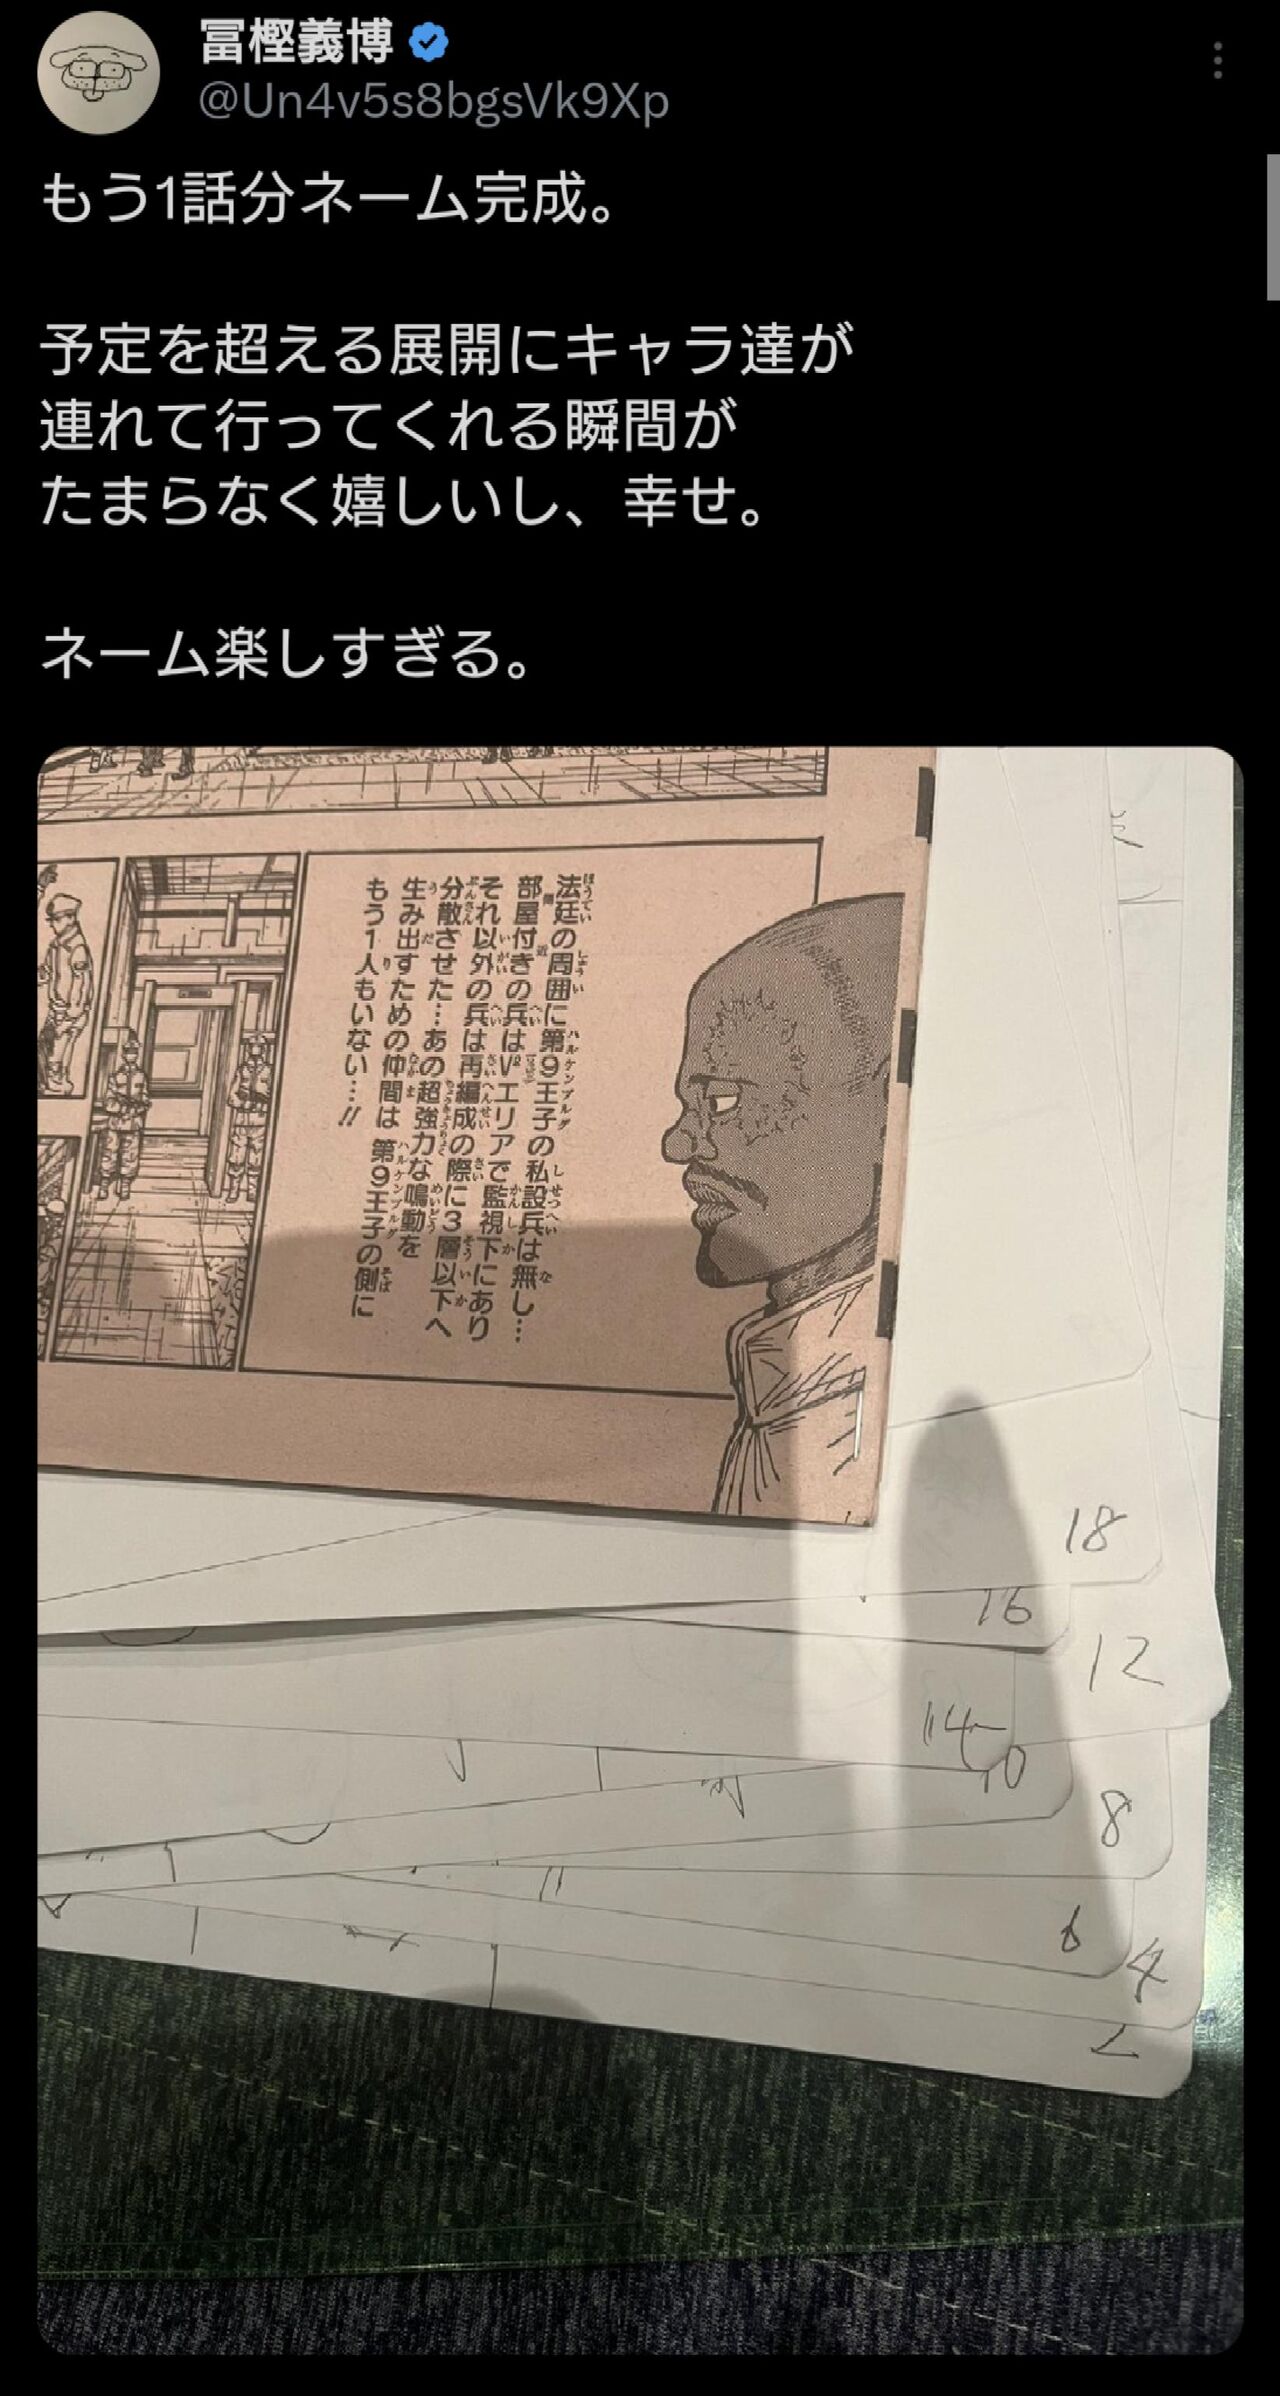 冨樫義博
@Un4v5s8bgsVk9Xp
もう1話分ネーム完成。
予定を超える展開にキャラ達が
連れて行ってくれる瞬間が
たまらなく嬉しいし、幸せ。
ネーム楽しすぎる。
法廷の周囲に第9王子の私設兵は無し…
部屋付きの兵はVエリアで監視下にあり
それ以外の兵は再編成の際に3層以下へ
分散させた…あの超強力な鳴動を
生み出すための仲間は第9王子の側に
もう1人もいない…!!
18
16
12
14
10
8
6
4
2